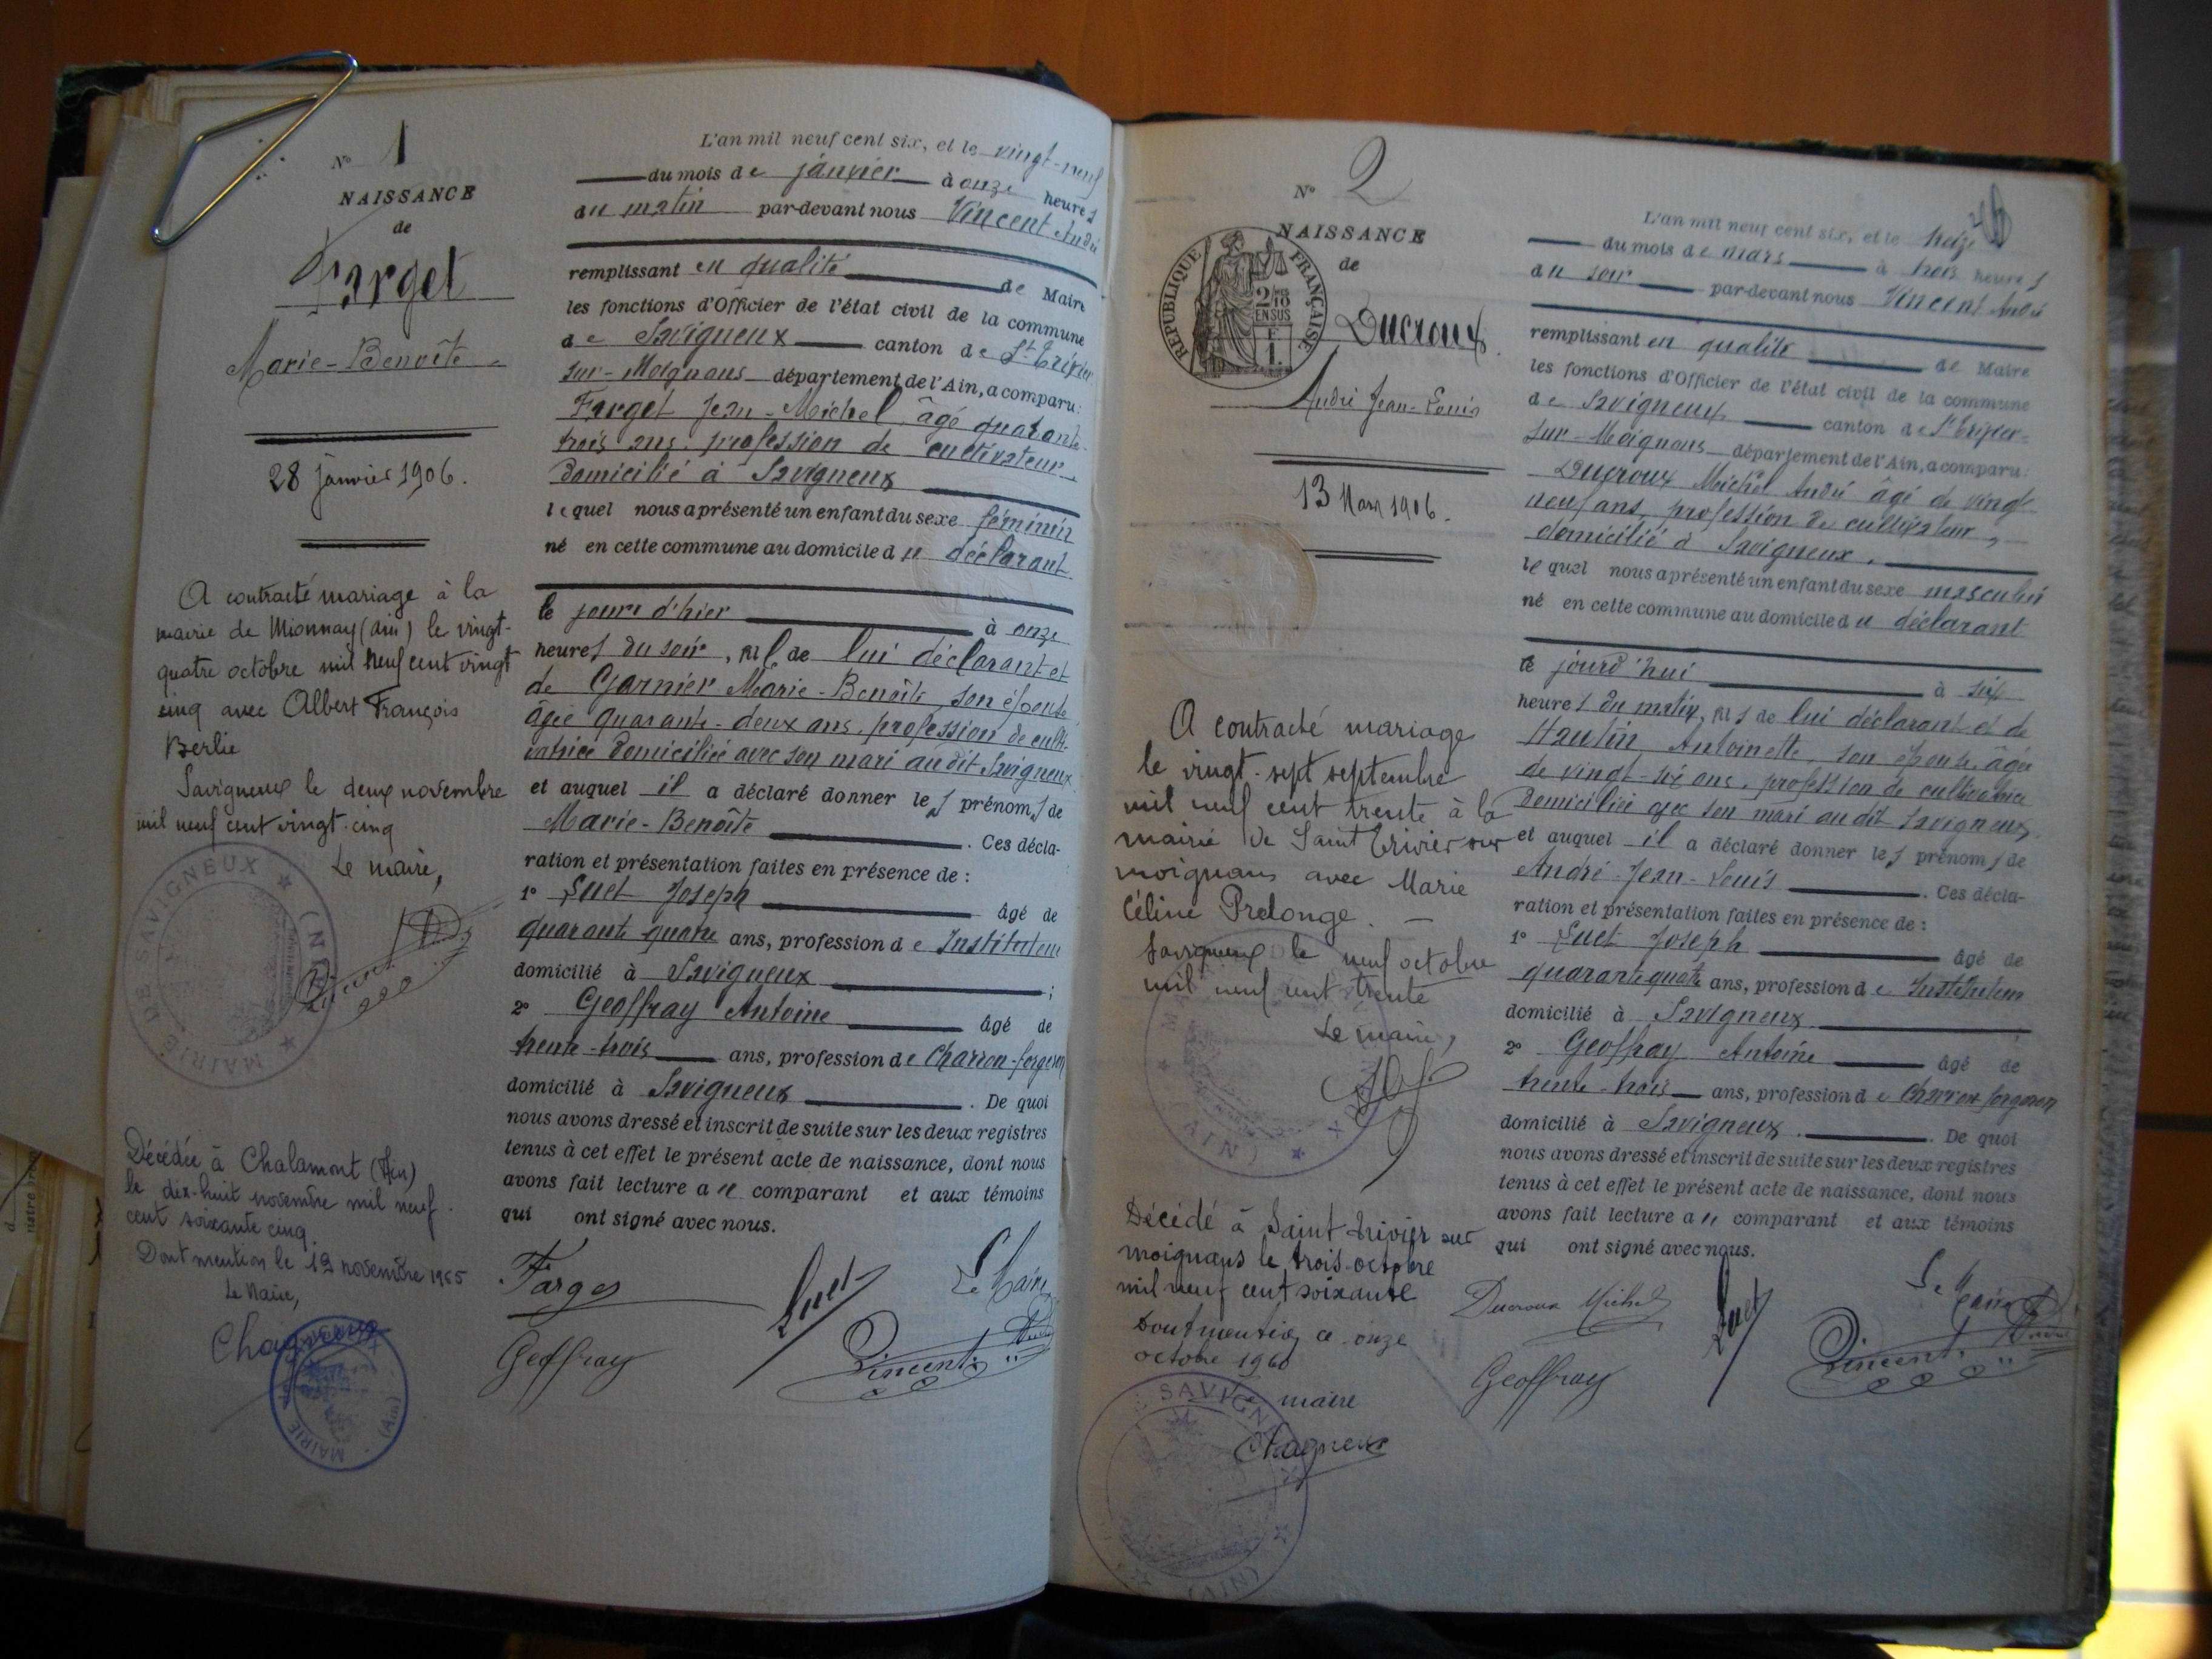 N° 1
NAISSANCE
de
Farget
Marie-Benoîte
28 janvier 1906.
A contracté mariage à la
mairie de Mionnay (Ain) le vingt-
quatre octobre mil neuf cent vingt
cinq avec Albert François
Berlie
Savigneux le deux novembre
mil neuf cent vingt-cinq
Le maire,
MAIRIE DE SAVIGNEUX (AIN)
Décédée à Chalamont (Ain)
le dix-huit novembre mil neuf
cent soixante cinq.
Dont mention le 19 novembre 1965
Le Maire,
Chagneux
MAIRIE (Ain)
L'an mil neuf cent six, et le vingt-neuf
du mois de janvier à onze heures
du matin par-devant nous Vincent André
remplissant en qualité de Maire
les fonctions d'Officier de l'état civil de la commune
de Savigneux canton de St Trivier
sur-Moignans département de l'Ain, a comparu:
Farget Jean-Michel, âgé quarante
trois ans, profession de cultivateur
domicilié à Savigneux
lequel nous a présenté un enfant du sexe féminin
né en cette commune au domicile du déclarant
le jour d'hier à onze
heures du soir, fil de lui déclarant et
de Garnier Marie-Benoîte, son épouse
âgée quarante-deux ans, profession de culti-
vatrice domiciliée avec son mari audit Savigneux
et auquel il a déclaré donner les prénoms de
Marie-Benoîte . Ces décla-
ration et présentation faites en présence de :
1° Suet Joseph âgé de
quarante quatre ans, profession de Instituteur
domicilié à Savigneux ;
2° Geoffray Antoine âgé de
trente-trois ans, profession de Charron-forgeron
domicilié à Savigneux . De quoi
nous avons dressé et inscrit de suite sur les deux registres
tenus à cet effet le présent acte de naissance, dont nous
avons fait lecture au comparant et aux témoins
qui ont signé avec nous.
Farget
Suet
Le Maire
Geoffray
Vincent André
N° 2
NAISSANCE
de
RÉPUBLIQUE FRANÇAISE
2/10
EN SUS
F
1.
Ducroux
André Jean-Louis
13 Mars 1906.
A contracté mariage
le vingt-sept septembre
mil neuf cent trente à la
mairie de Saint Trivier sur
moignans avec Marie
Céline Prelonge.
Savigneux le neuf octobre
mil neuf cent trente
Le maire,
(AIN)
Décédé à Saint-trivier sur
moignans le trois octobre
mil neuf cent soixante
Dont mention ce onze
octobre 1960
maire
Chagneux
SAVIGN
(AIN)
L'an mil neuf cent six, et le treize
du mois de mars à trois heures
du soir par-devant nous Vincent André
remplissant en qualité de Maire
les fonctions d'Officier de l'état civil de la commune
de Savigneux canton de St Trivier-
sur-Moignans département de l'Ain, a comparu:
Ducroux Michel André âgé de vingt
neuf ans, profession de cultivateur,
domicilié à Savigneux,
lequel nous a présenté un enfant du sexe masculin
né en cette commune au domicile du déclarant
le jourd'hui à six
heures du matin, fils de lui déclarant et de
Hautin Antoinette, son épouse, âgée
de vingt-six ans, profession de cultivatrice
domiciliée avec son mari audit Savigneux,
et auquel il a déclaré donner les prénoms de
André-Jean-Louis . Ces décla-
ration et présentation faites en présence de :
1° Suet Joseph âgé de
quarante quatre ans, profession de Instituteur
domicilié à Savigneux
2° Geoffray Antoine âgé de
trente-trois ans, profession de Charron forgeron
domicilié à Savigneux . De quoi
nous avons dressé et inscrit de suite sur les deux registres
tenus à cet effet le présent acte de naissance, dont nous
avons fait lecture au comparant et aux témoins
qui ont signé avec nous.
Ducroux Michel
Suet
Le Maire
Geoffray
Vincent André